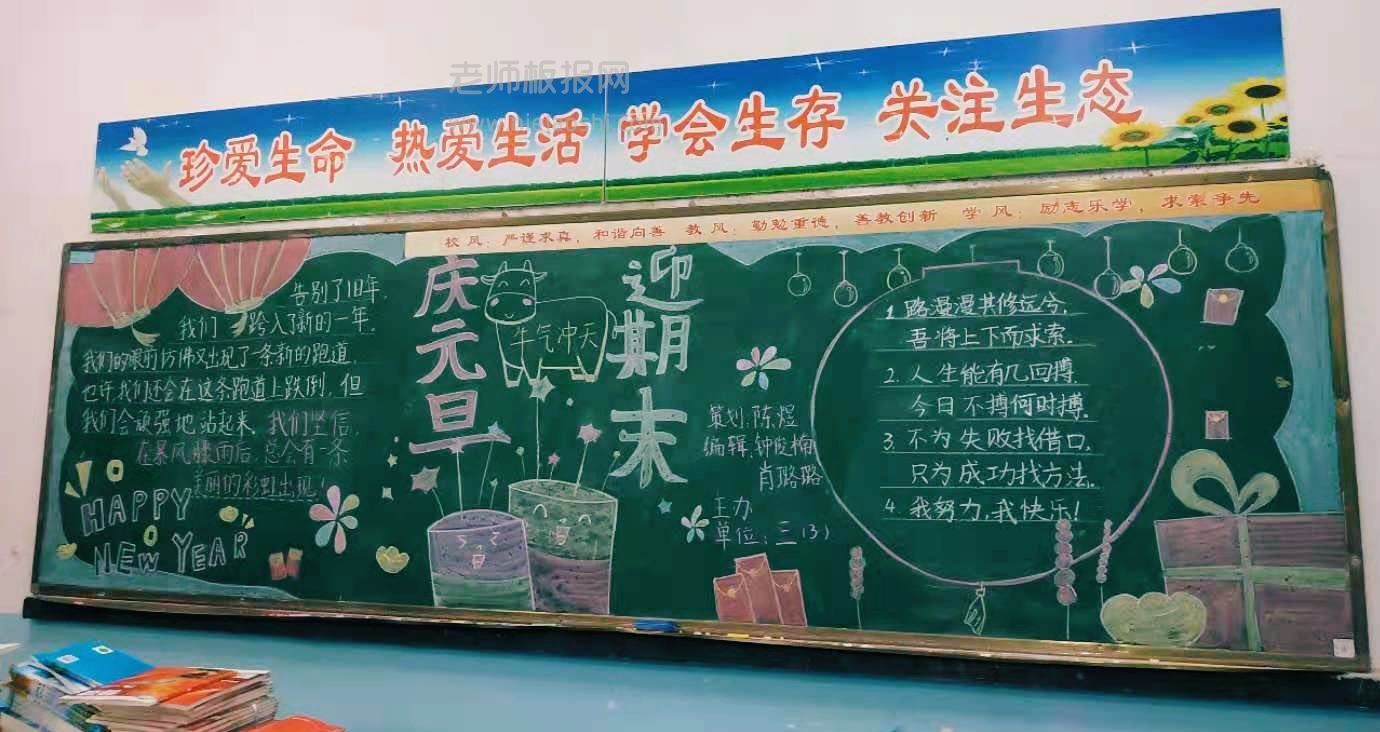 老师板报网
珍爱生命 热爱生活 学会生存 关注生态
校风：严谨求真，和谐向善 教风：勤勉重德，善教创新 学风：励志乐学，求索争先
告别了旧年，
我们 跨入了新的一年。
我们的眼前仿佛又出现了一条新的跑道，
也许我们还会在这条跑道上跌倒，但
我们会顽强地站起来，我们坚信，
在暴风骤雨后，总会有一条
美丽的彩虹出现！
HAPPY
NEW YEAR
庆元旦
牛气冲天
迎期末
策划：陈煜
编辑：钟俊楠
肖璐璐
主办
单位：三(3)
1. 路漫漫其修远兮，
吾将上下而求索。
2. 人生能有几回搏，
今日不搏何时搏。
3. 不为失败找借口，
只为成功找方法。
4. 我努力，我快乐！